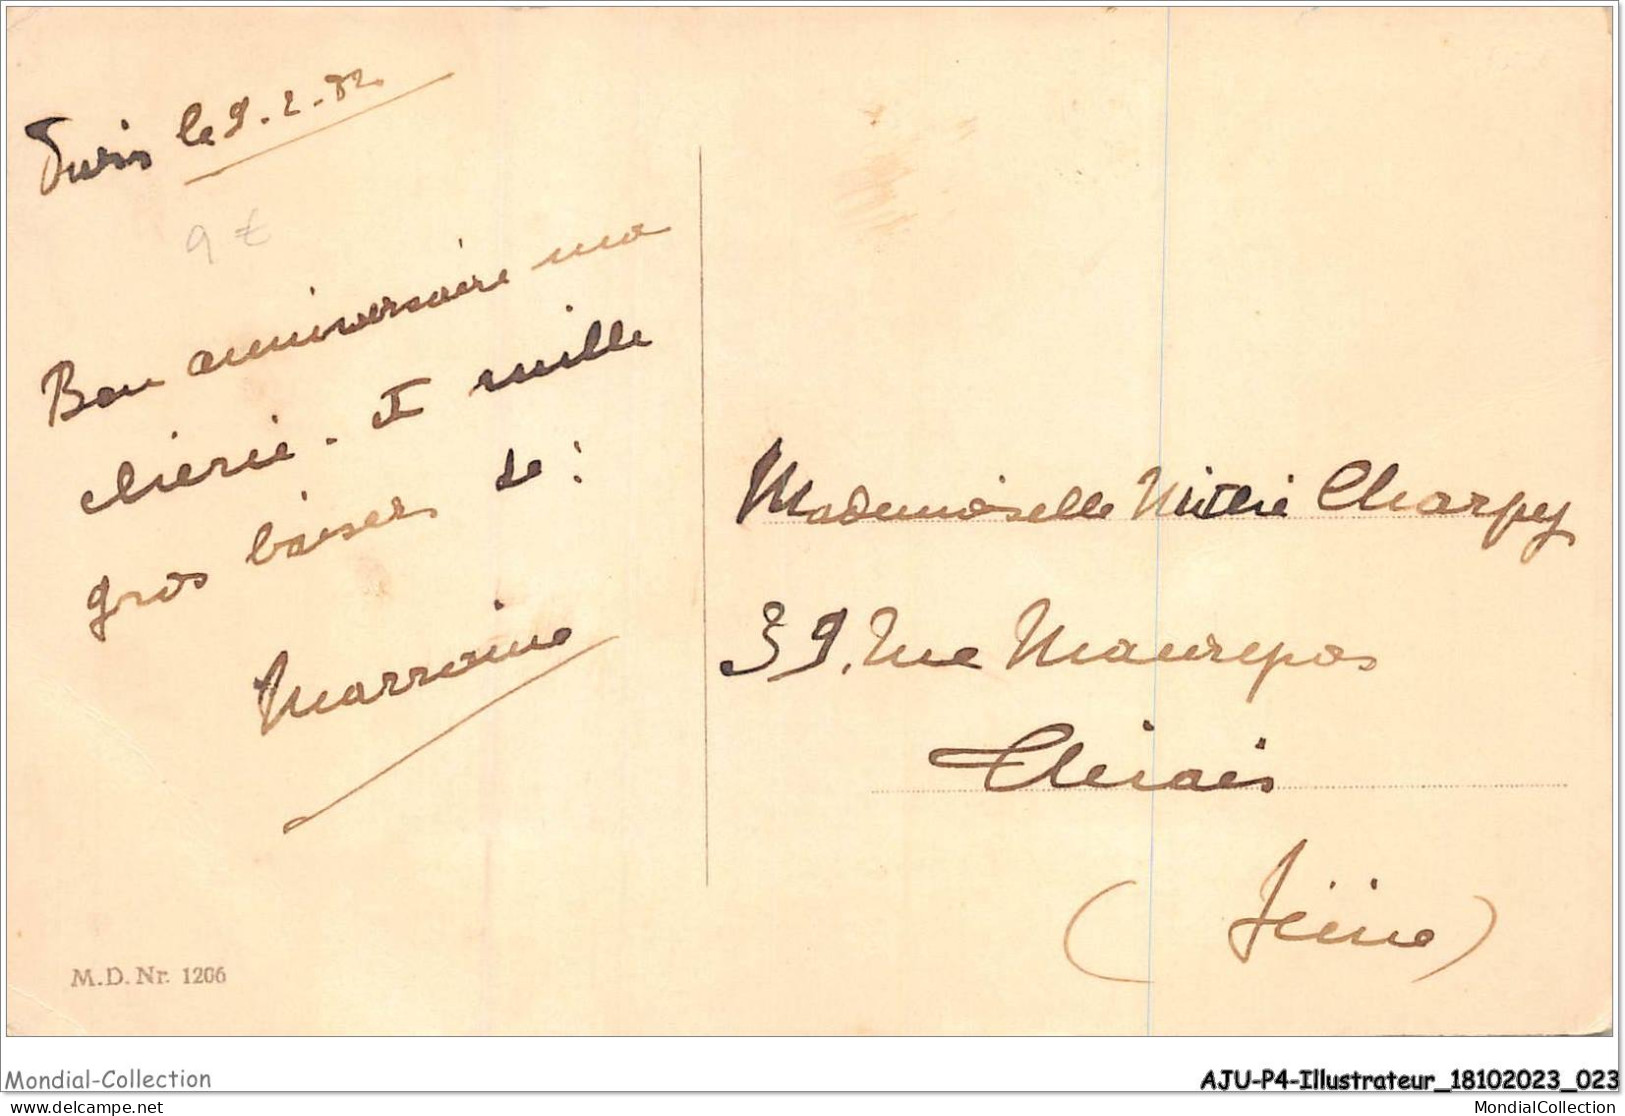 le 9.2.52
9 €
Bon anniversaire ma
chérie. Et mille
gros baisers de :
Marraine
Mademoiselle Charpy
39. Rue Maurepas
Thiais
(Seine)
M.D. Nr. 1206
Mondial-Collection
AJU-P4-Illustrateur_18102023_023
www.delcampe.net
MondialCollection